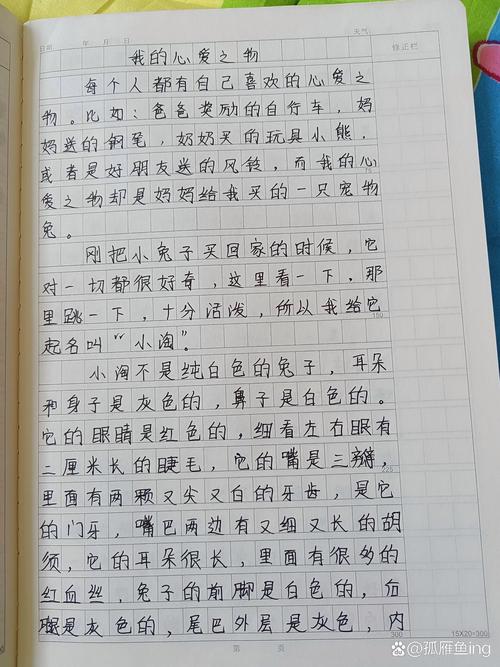 日期 年 月 日 天气:
修正栏
我的心爱之物
每个人都有自己喜欢的心爱之
物。比如:爸爸奖励的自行车,妈
妈送的钢笔,奶奶买的玩具小熊,
或者是好朋友送的风铃,而我的心
75
爱之物却是妈妈给我买的一只宠物
兔。
刚把小兔子买回家的时候,它
对一切都很好奇,这里看一下,那
里跳一下,十分活泼,所以我给它
150
起名叫“小淘”。
小淘不是纯白色的兔子,耳朵
和身子是灰色的,鼻子是白色的。
它的眼睛是红色的,细看左右眼有
二厘米长的睫毛,它的嘴是三瓣,
225
里面有两颗又尖又白的牙齿,是它
的门牙,嘴巴两边有又细又长的胡
须,它的耳朵很长,里面有很多的
红血丝,兔子的前脚是白色的,后
腿是灰色的,尾巴外层是灰色,内
300
15X20=300
第 页
@孤雁鱼ing